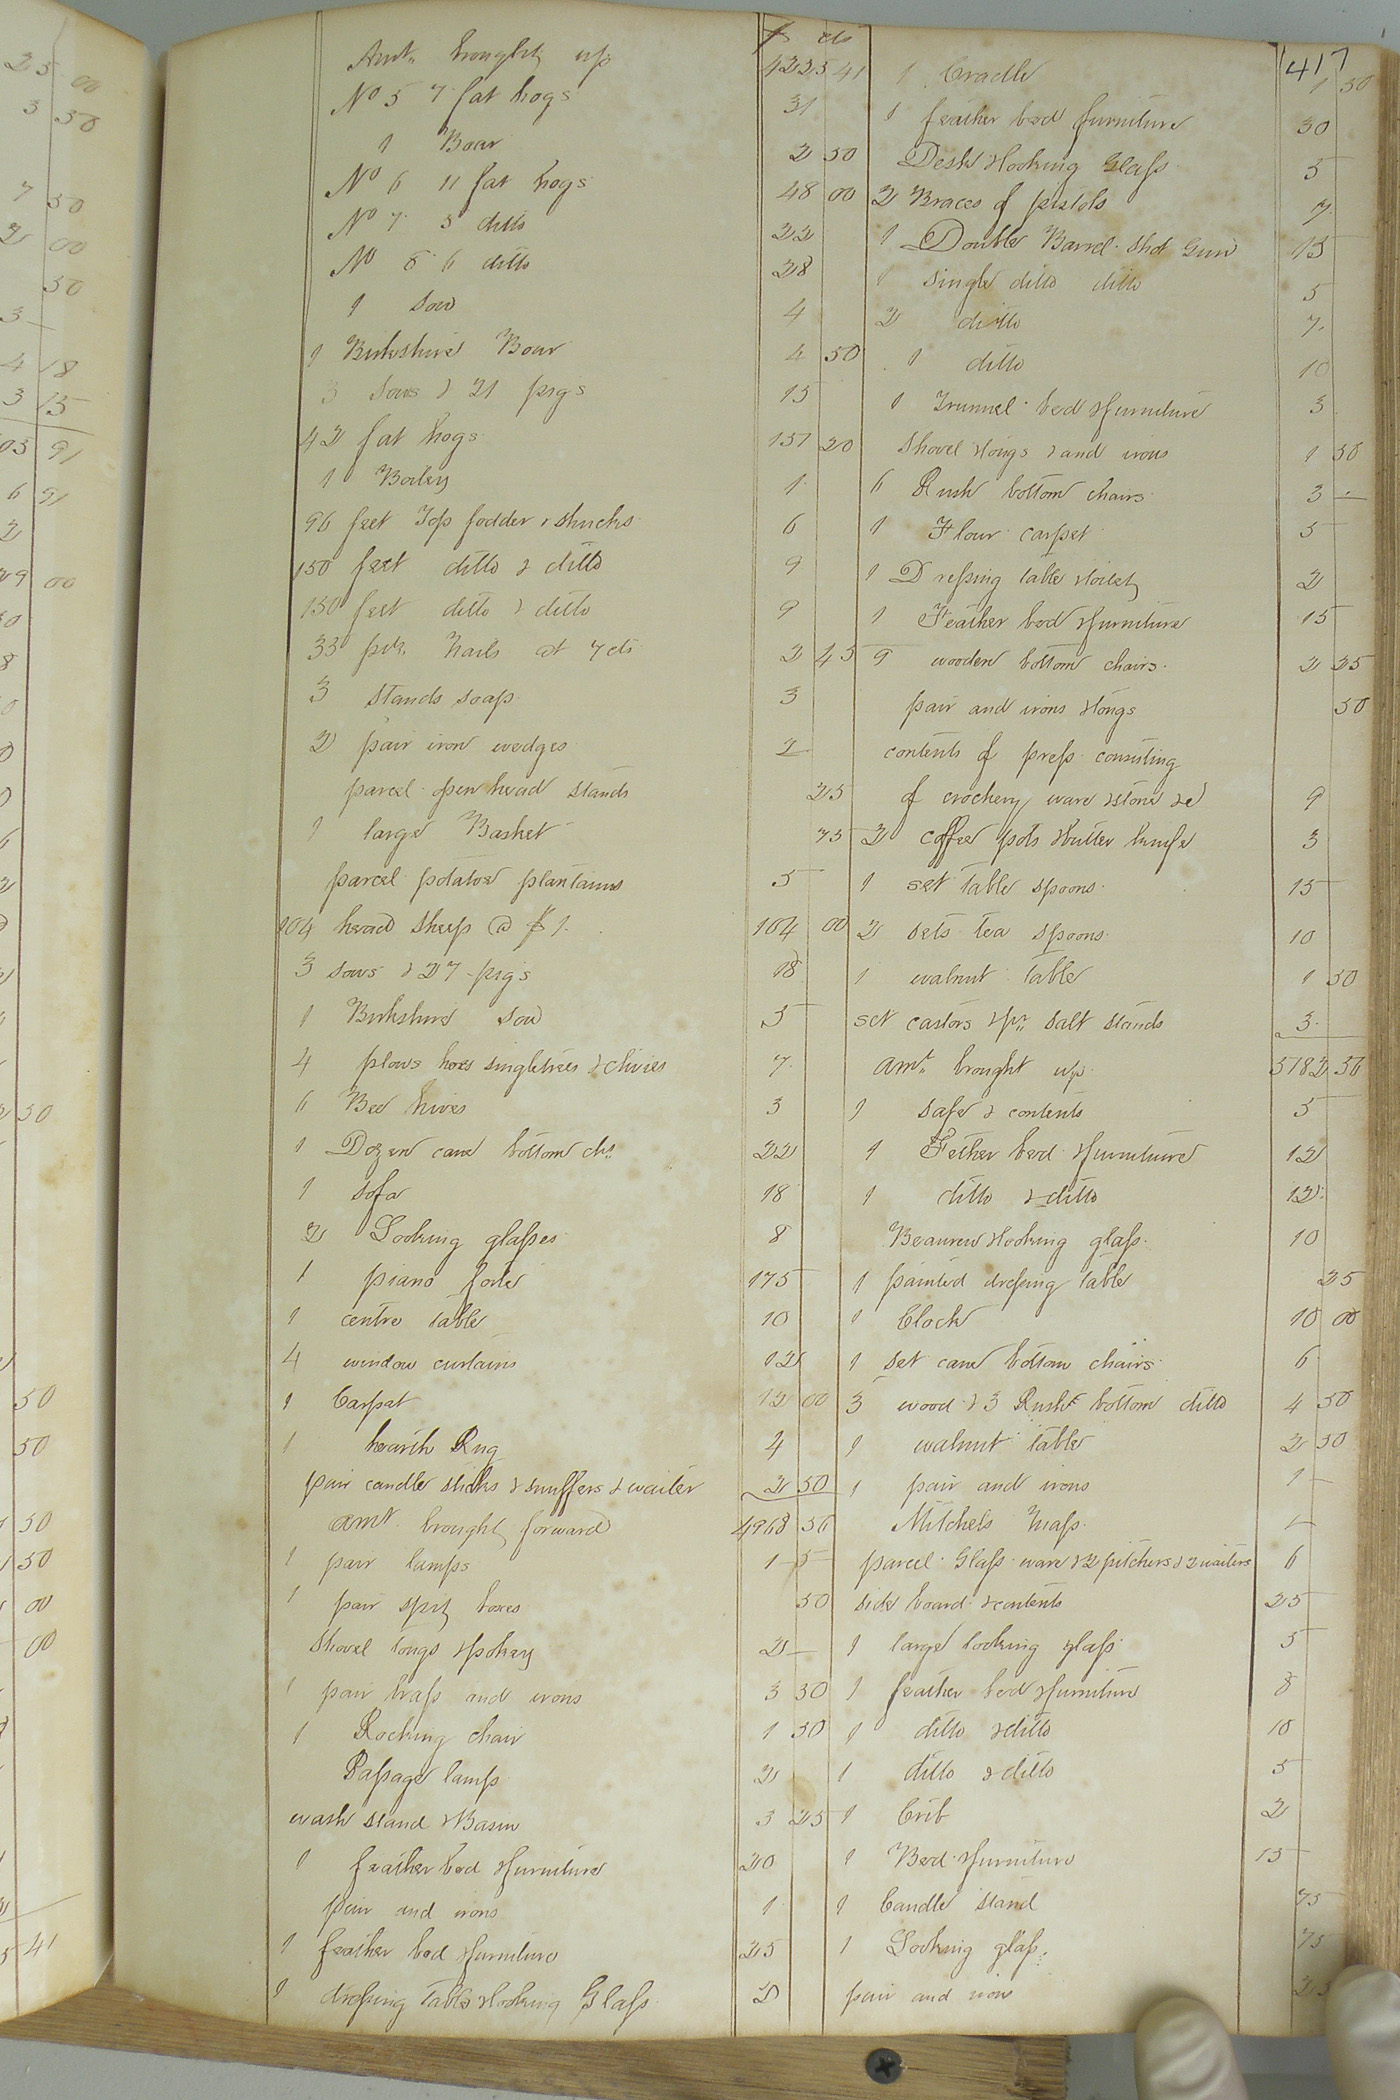 25 00
3 50
7 50
2 00
50
3 —
4 18
3 15
91
6 91
2
29 00
50
50
50
50
50
00
00
5 41
417
$ cts
Amt. brought up 4225 41
No 5 7 fat hogs 31
1 Boar 2 50
No 6 11 fat hogs 48 00
No 7. 5 ditto 22
No 8 6 ditto 28
1 Sow 4
1 Birkshire Boar 4 50
3 Sows & 21 pigs 15
42 fat hogs 157 20
1 Barley 1
96 feet Top fodder & shucks 6
150 feet ditto & ditto 9
150 feet ditto & ditto 9
35 pds. Nails at 7 cts 2 45
3 stands soap 3
2 pair iron wedges 2
parcel open head stands 25
1 large Basket 75
parcel potatoe plantains 5
104 head sheep @ $1. 104 00
3 sows & 27 pigs 18
1 Birkshire sow 5
4 plows hoes singletrees & clivies 7
6 Bee hives 3
1 Dozen cane bottom chs. 22
1 sofa 18
2 Looking glasses 8
1 piano forte 175
1 centre table 10
4 window curtains 12
1 Carpet 12 00
1 hearth Rug 4
pair candle sticks & snuffers & waiter 2 50
amt. brought forward 4968 56
1 pair lamps 1 5
1 pair spit boxes 50
Shovel tongs & pokers 2 —
1 pair brass and irons 3 50
1 Rocking chair 1 50
Passage lamp 2
wash stand & Basin 3 25
1 feather bed & furniture 20
pair and irons 1
1 feather bed & furniture 25
1 dressing table & looking Glass 2
1 Cradle 1 50
1 feather bed furniture 30
Desk & looking Glass 5
2 Braces of pistols 7
1 Double Barrel Shot Gun 15
1 single ditto ditto 5
2 ditto 7
1 ditto 10
1 Trunnel bed & furniture 3
Shovel & tongs & and irons 1 50
6 Rush bottom chairs 3 —
1 Flour carpet 5
1 Dressing table & toilet 2
1 Feather bed & furniture 15
9 wooden bottom chairs 2 25
pair and irons & tongs 50
contents of press consisting
of crockery ware & stone &c 9
2 coffee pots & butter knife 3
1 set table spoons 15
2 sets tea spoons 10
1 walnut table 1 50
set castors & pr. salt stands 3
amt. brought up 5182 56
1 safe & contents 5
1 Fether bed & furniture 12
1 ditto & ditto 12
Beaurew & looking glass 10
1 painted dressing table 25
1 Clock 10 00
1 set cane bottom chairs 6
3 wood & 3 Rush bottom ditto 4 50
1 walnut table 2 50
1 pair and irons 1 —
Mitchels Map
parcel Glass ware & 2 pitchers & 2 waiters 6
side board & contents 25
1 large looking glass 5
1 feather bed & furniture 8
1 ditto & ditto 10
1 ditto & ditto 5
1 Crib 2
1 Bed & furniture 15
1 Candle stand 75
1 Looking glass 75
pair and irons